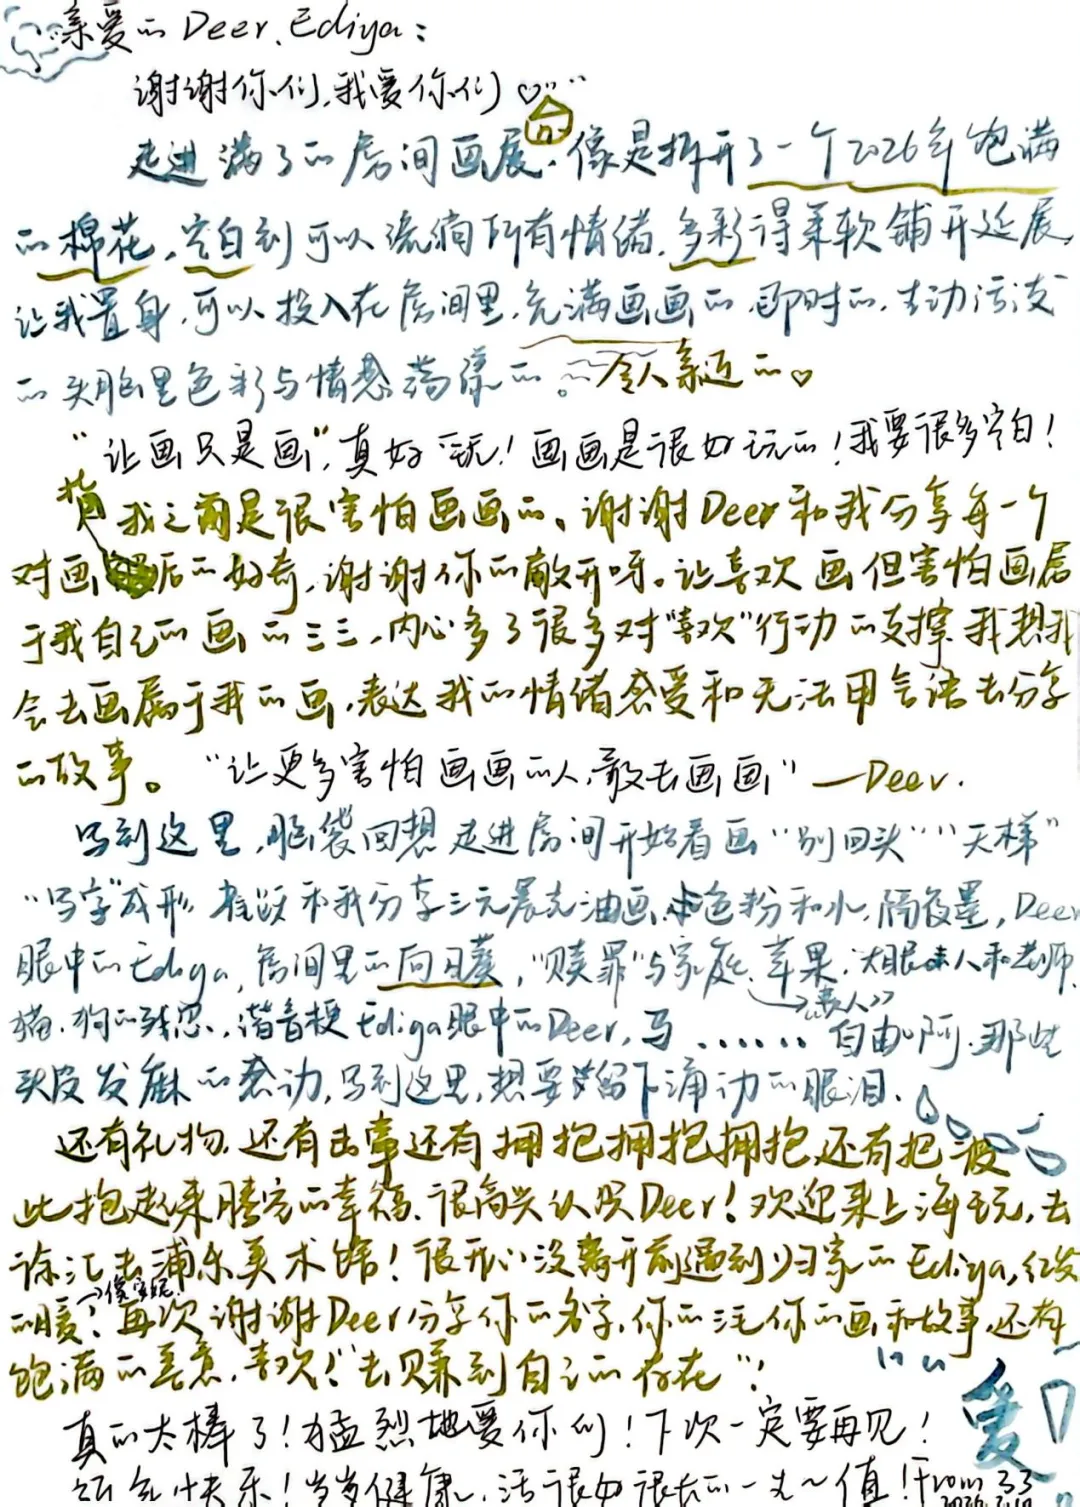 亲爱的Deer、Ediya：
谢谢你们，我爱你们♡
走进满了的房间画展，像是拆开了一个2026年饱满
的棉花，空白到可以流淌所有情绪，多彩得柔软铺开延展，
让我置身，可以投入在房间里，充满画画的，即时的，生动活泼
的头脑里色彩与情感荡漾的。令人亲近的♡
“让画只是画”，真好玩！画画是很好玩的！我要很多空白！
我之前是很害怕画画的、谢谢Deer和我分享每一个
对画背后的好奇，谢谢你的敞开呀。让喜欢画但害怕画属
于我自己的画的三三，内心多了很多对“喜欢”行动的支撑，我想我
会去画属于我的画，表达我的情绪感受和无法用言语去分享
的故事。“让更多害怕画画的人，敢去画画”—Deer.
写到这里，脑袋回想走进房间开始看画“别回头”“天梯”
“写字”成形 和我分享三元 油画、色粉和水，隔夜墨，Deer
眼中的Ediya，房间里的向日葵，“赎罪”与家庭、苹果，大眼 人和老师，
→“素人”
猫、狗的残忍、谐音梗 Ediya眼中的Deer，马......自由啊，那些
头皮发麻的感动，写到这里，想要留下涌动的眼泪、
还有礼物，还有击掌还有拥抱拥抱拥抱，还有把彼
此抱起来腾空的幸福、很高兴认识Deer！欢迎来上海玩，去
徐汇去浦东美术馆！很开心没离开前遇到归家的Ediya，红发
的暖！再次谢谢Deer分享你的名字，你的 你的画和故事，还有
饱满的善意，喜欢！“去赚到自己的存在”！
真的太棒了！猛烈地爱你们！下次一定要再见！
爱！
快乐！岁岁健康，活很好很长的一生～值！From 33